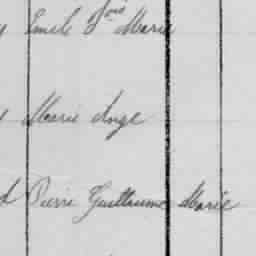 Emile Fois Marie
Marie Ange
Pierre Guillaume Marie